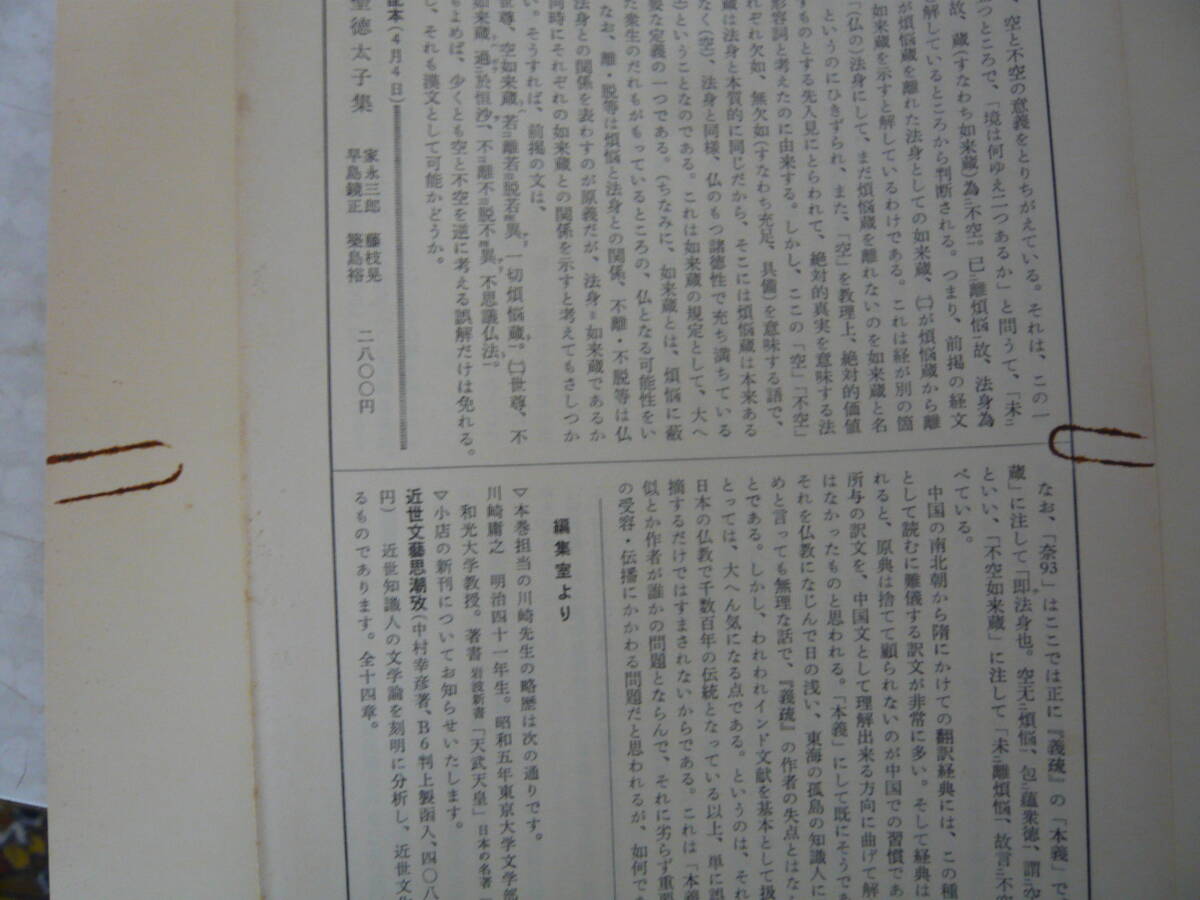 、空と不空の意義をとりちがえている。それは、この一
つところで、「境は何ゆえ二つあるか」と問うて、「未二
故、蔵(すなわち如来蔵)為二不空一。已二離煩悩一故、法身為
解しているところから判断される。つまり、前掲の経文
が煩悩蔵を離れた法身としての如来蔵、㈡が煩悩蔵から離
如来蔵を示すと解しているわけである。これは経が別の箇
「(仏の)法身にして、まだ煩悩蔵を離れないのを如来蔵と名
というのにひきずられ、また、「空」を教理上、絶対的価値
ものとする先入見にとらわれて、絶対的真実を意味する法
形容詞と考えたのに由来する。しかし、ここの「空」「不空」
れぞれ欠如、無欠如(すなわち充足、具備)を意味する語で、
蔵は法身と本質的に同じだから、そこには煩悩蔵は本来ある
なく(空)、法身と同様、仏のもつ諸徳性で充ち満ちている
空)ということなのである。これは如来蔵の規定として、大へ
要な定義の一つである。(ちなみに、如来蔵とは、煩悩に蔽
た衆生のだれもがもっているところの、仏となる可能性をい
なお、離・脱等は煩悩と法身との関係、不離・不脱等は仏
法身との関係を表わすのが原義だが、法身=如来蔵であるか
同時にそれぞれの如来蔵との関係を示すと考えてもさしつか
い。そうすれば、前掲の文は、
世尊、空如来蔵、若離若脱若異一切煩悩蔵。㈡世尊、不
如来蔵、過於恒沙、不離不脱不異不思議仏法。
もよめば、少くとも空と不空を逆に考える誤解だけは免れる。
し、それも漢文として可能かどうか。
本(4月4日)
聖徳太子集
家永三郎 藤枝晃
早島鏡正 築島裕
二八〇〇円
なお、「奈93」はここでは正に『義疏』の「本義」で
蔵」に注して「即法身也。空无二煩悩一、包二蘊衆徳一、謂二空
といい、「不空如来蔵」に注して「未二離煩悩一、故言二不空
べている。
中国の南北朝から隋にかけての翻訳経典には、この種
として読むに難儀する訳文が非常に多い。そして経典は
れると、原典は捨てて顧られないのが中国での習慣であ
所与の訳文を、中国文として理解出来る方向に曲げて解
はなかったものと思われる。「本義」にして既にそうであ
それを仏教になじんで日の浅い、東海の孤島の知識人に
めと言っても無理な話で、『義疏』の作者の失点とはな
とである。しかし、われわれインド文献を基本として扱
とっては、大へん気になる点である。というのは、それ
日本の仏教で千数百年の伝統となっている以上、単に誤
摘するだけではすまされないからである。これは「本義
似とか作者が誰かの問題とならんで、それに劣らず重要
の受容・伝播にかかわる問題だと思われるが、如何で
編集室より
▽本巻担当の川崎先生の略歴は次の通りです。
川崎庸之 明治四十一年生。昭和五年東京大学文学部
和光大学教授。著書 岩波新書「天武天皇」日本の名著
▽小店の新刊についてお知らせいたします。
近世文藝思潮攷(中村幸彦著、B6判上製函入、四〇八
円) 近世知識人の文学論を刻明に分析し、近世文化
るものであります。全十四章。